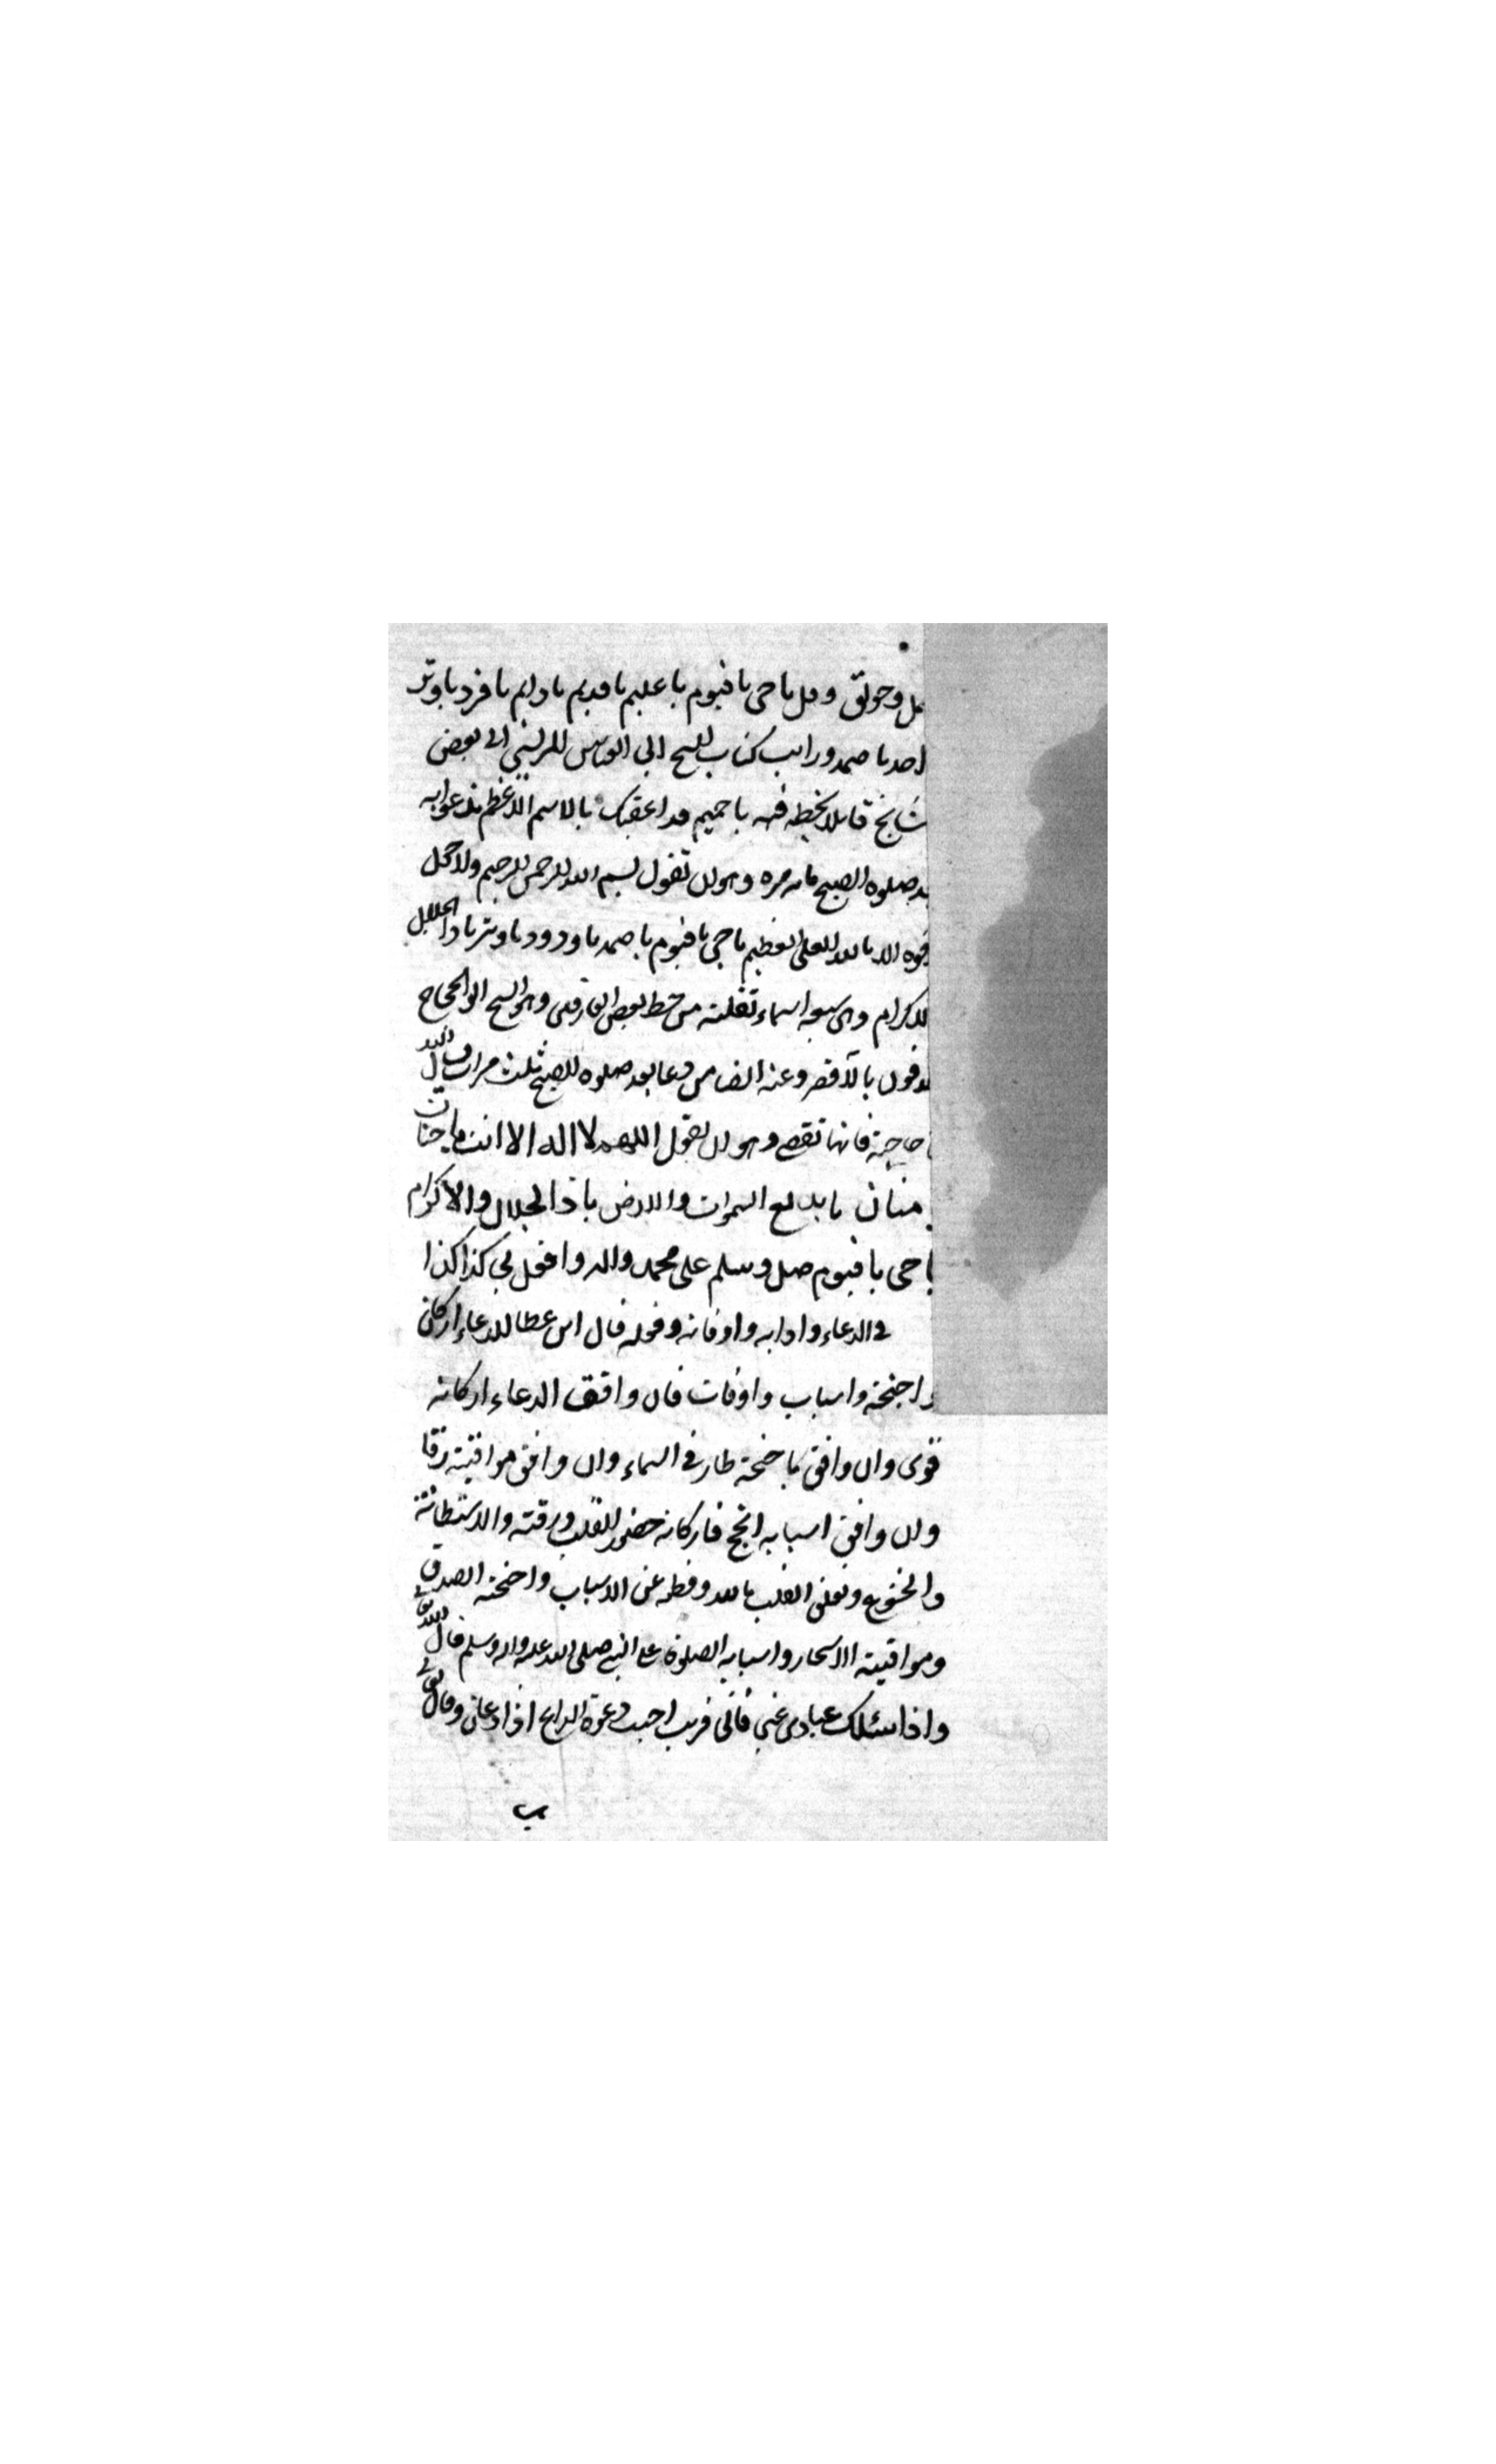 وحوقل وقل يا حي يا قيوم يا عليم يا قديم يا دايم يا فرد يا وتر
احد يا صمد ورايت كتاب الشيخ ابي العباس المرسي الى بعض
قايلا بخطه فيه يا حميم قد اعقبتك بالاسم الاعظم تدعوا به
صلوه الصبح مايه مره وهو ان تقول بسم الله الرحمن الرحيم ولا حول
قوه الا بالله العلي العظيم يا حي يا قيوم يا صمد يا ودود يا وتر يا ذا الجلال
الاكرام وهى سبعه اسماء نقلته من خط بعض العارفين وهو الشيخ ابو الحجاج
وعنه ايضا من دعا بعد صلوه الصبح ثلث مرات وسال الله
حاجته فانها تقضى وهو ان يقول اللهم لا اله الا انت يا حنان
منان يا بديع السموات والارض يا ذا الجلال والاكرام
يا حي يا قيوم صل وسلم على محمد واله وافعل بي كذا كذا
في الدعاء وادابه واوقاته وفضله قال ابن عطا للدعاء اركان
واجنحة واسباب واوقات فان وافق الدعاء اركانه
قوى وان وافق باجنحته طار في السماء وان وافق مواقيته رقا
وان وافق اسبابه انجح فاركانه حضور القلب ورقته والاستطانة
والخشوع وتعلق القلب بالله وقطعه عن الاسباب واجنحته الصدق
ومواقيته الاسحار واسبابه الصلوة على النبي صلى الله عليه واله وسلم قال الله تعالى
واذا سئلك عبادى عني فاني قريب اجيب دعوة الداع اذا دعان وقال تعالى